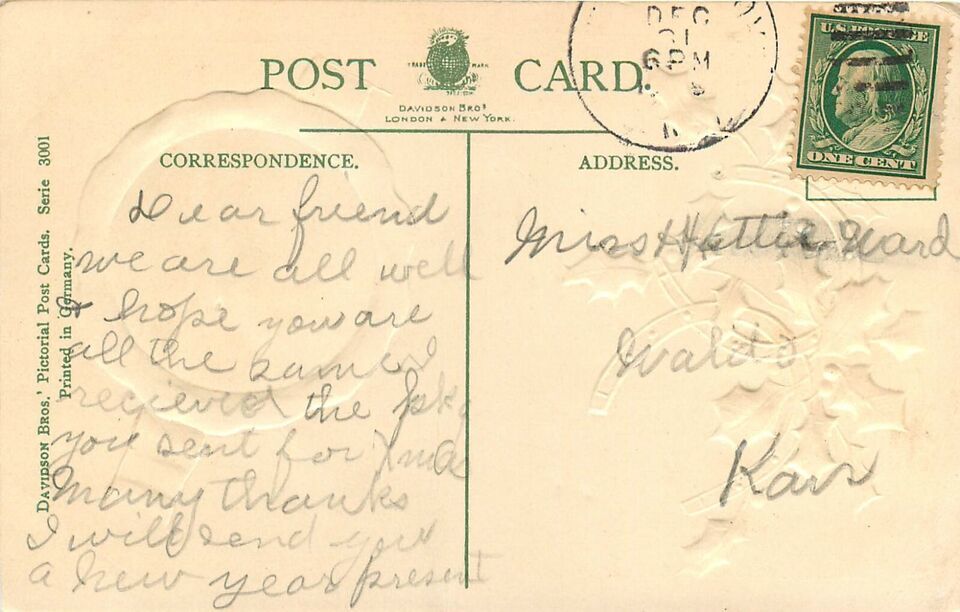 POST CARD.
TRADE MARK
DAVIDSON BROS
LONDON & NEW YORK.
DEC
31
6 PM
U.S. POSTAGE
ONE CENT
DAVIDSON BROS.' Pictorial Post Cards. Serie 3001
Printed in Germany.
CORRESPONDENCE.
Dear friend
we are all well
& hope you are
all the same I
recieved the pkg
you sent for Xmas
Many thanks
I will send you
a new year present
ADDRESS.
Miss Hattie Ward
Waldo
Kans